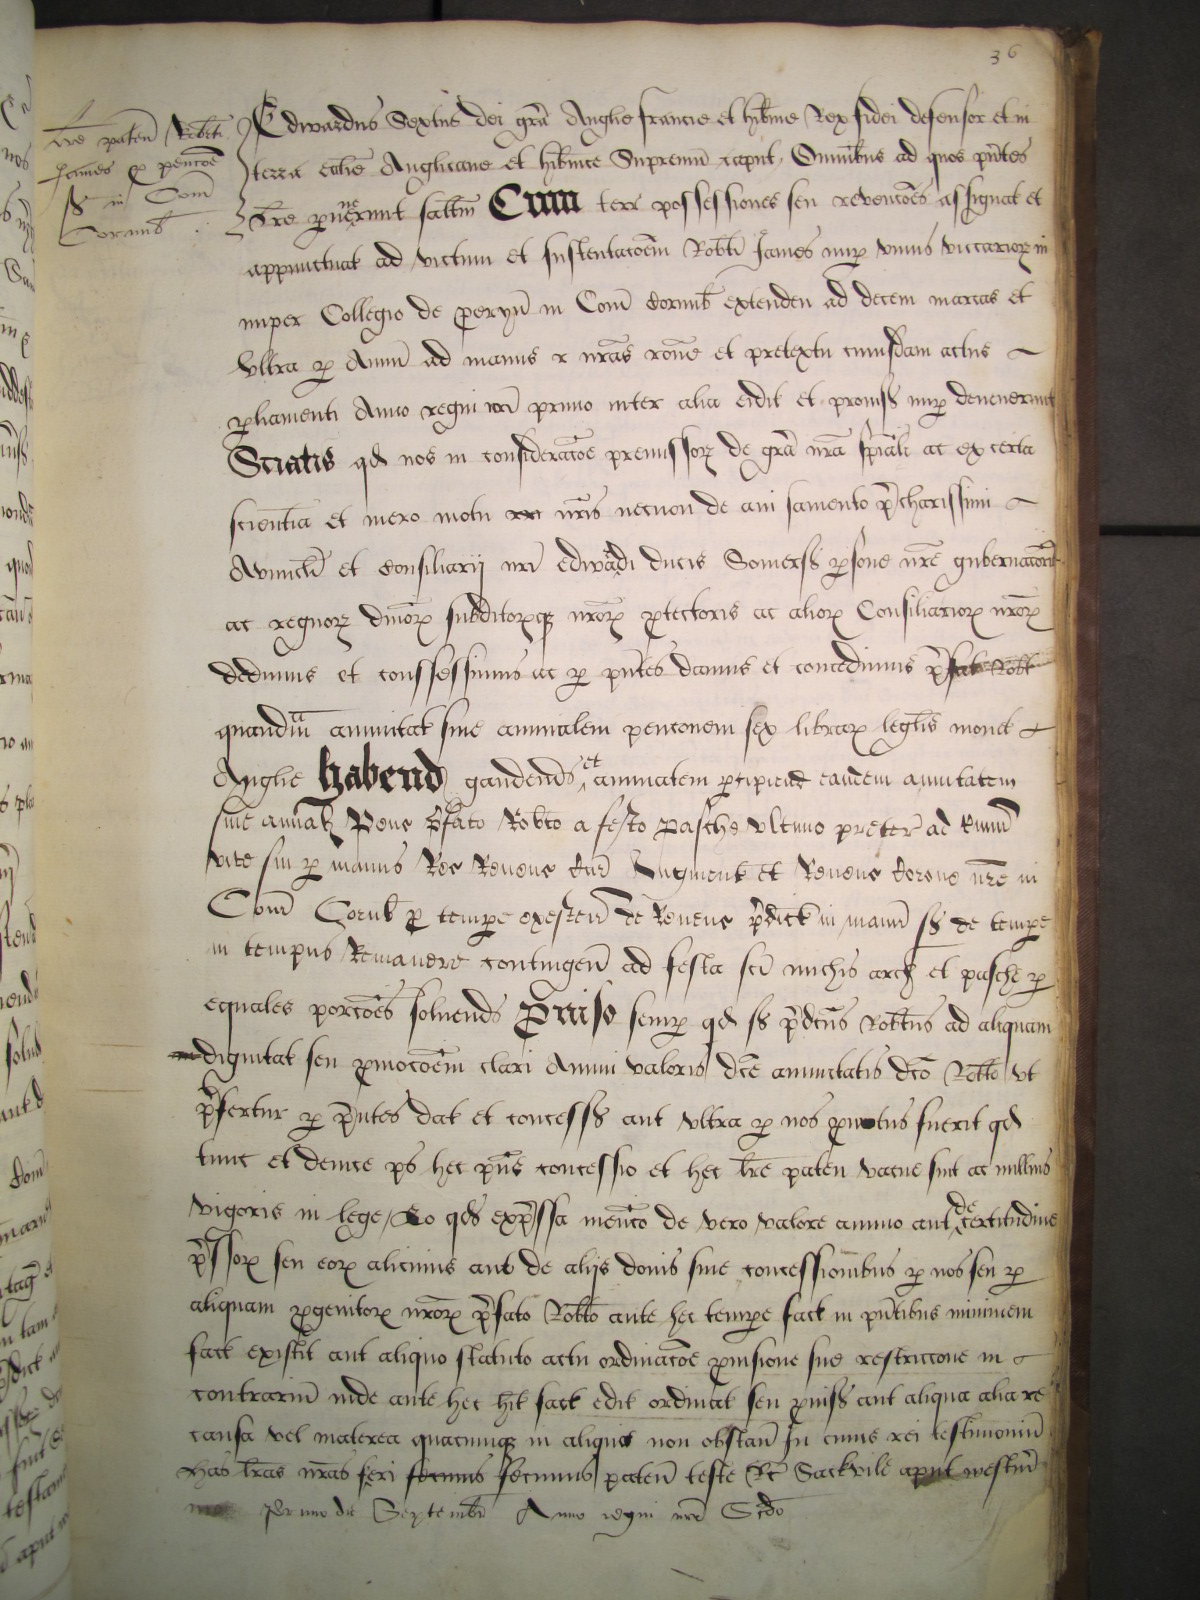 36
lre paten Robti
James p pencoe
ss in Com
Cornub
Edwardus Sextus dei gra Anglie francie et hibnie Rex fidei defensor et in
terra ecclie Anglicane et hibnice Supremu caput Omnibus ad quos pntes
lre pnerint saltm Cum terr possessiones seu revencoes assignat et
appunctuat ad victum et sustentacoem Robti James nup unius viccarior in
nuper Collegio de peryn in Com Cornub extenden ad decem marcas et
ultra p Annu ad manus r nras rone et pretextu cuiusdam actus
pliamenti Anno regni nri primo inter alia edit et proviss nup devenerunt
Sciatis qd nos in consideracoe premissor de gra nra spiali ac ex certa
scientia et mero motu nris necnon de avisamento pcharissimi
Avunculi et Consiliarij nri edwardi ducis Somerss psone nre gubernatoris
ac regnor dnior subditorq nror ptectoris ac alior Consiliarior nror
dedimus et conssessimus ac p pntes damus et concedimus pfat Robt
quandm annuitat sive annualem penconem sex librar leglis monet
Anglie habend gaudend et annuatem pcipiend eandem anuitatem
sive annalz penc pfato Robto a festo pasche ultimo preter ad tmm
vite sue p manus Rec Revenc Cur Augment et Revenc Corone nre in
Com Cornub p tempe exesten de Revenc pdict in manu ss de tempe
in tempus Remanere contingen ad festa sci michis arch et pasche p
equales porcoes solvend proviso semp qd si pdcus Robtus ad aliquam
dignitat seu pmocoem clari Annui valoris dce annuitatis dco Robto ut
pfertur p pntes dat et concess aut ultra p nos pmotus fuerit qd
tunc et deince ps hec pns concessio et hec lre paten vacue sint ac nullius
vigoris in lege Eo qd expssa mencio de vero valore annuo aut de certitudine
pssor seu eor alicuius aut de alijs donis sive concessionibus p nos seu p
aliquam pgenitor nror pfato Robto ante hec tempe fact in pntibus minimem
fact existit aut aliquo statuto actu ordinacoe pvisione sive restriccone in
contrariu inde ante hec hit fact edit ordinat seu pviss aut aliqua alia re
causa vel materea quacunq in aliquo non obstan In cuius rei testimoniu
has lras nras fieri fecimus fecimus paten teste R Sackvile aput westm
primo die Septembr Anno regni nri Scdo